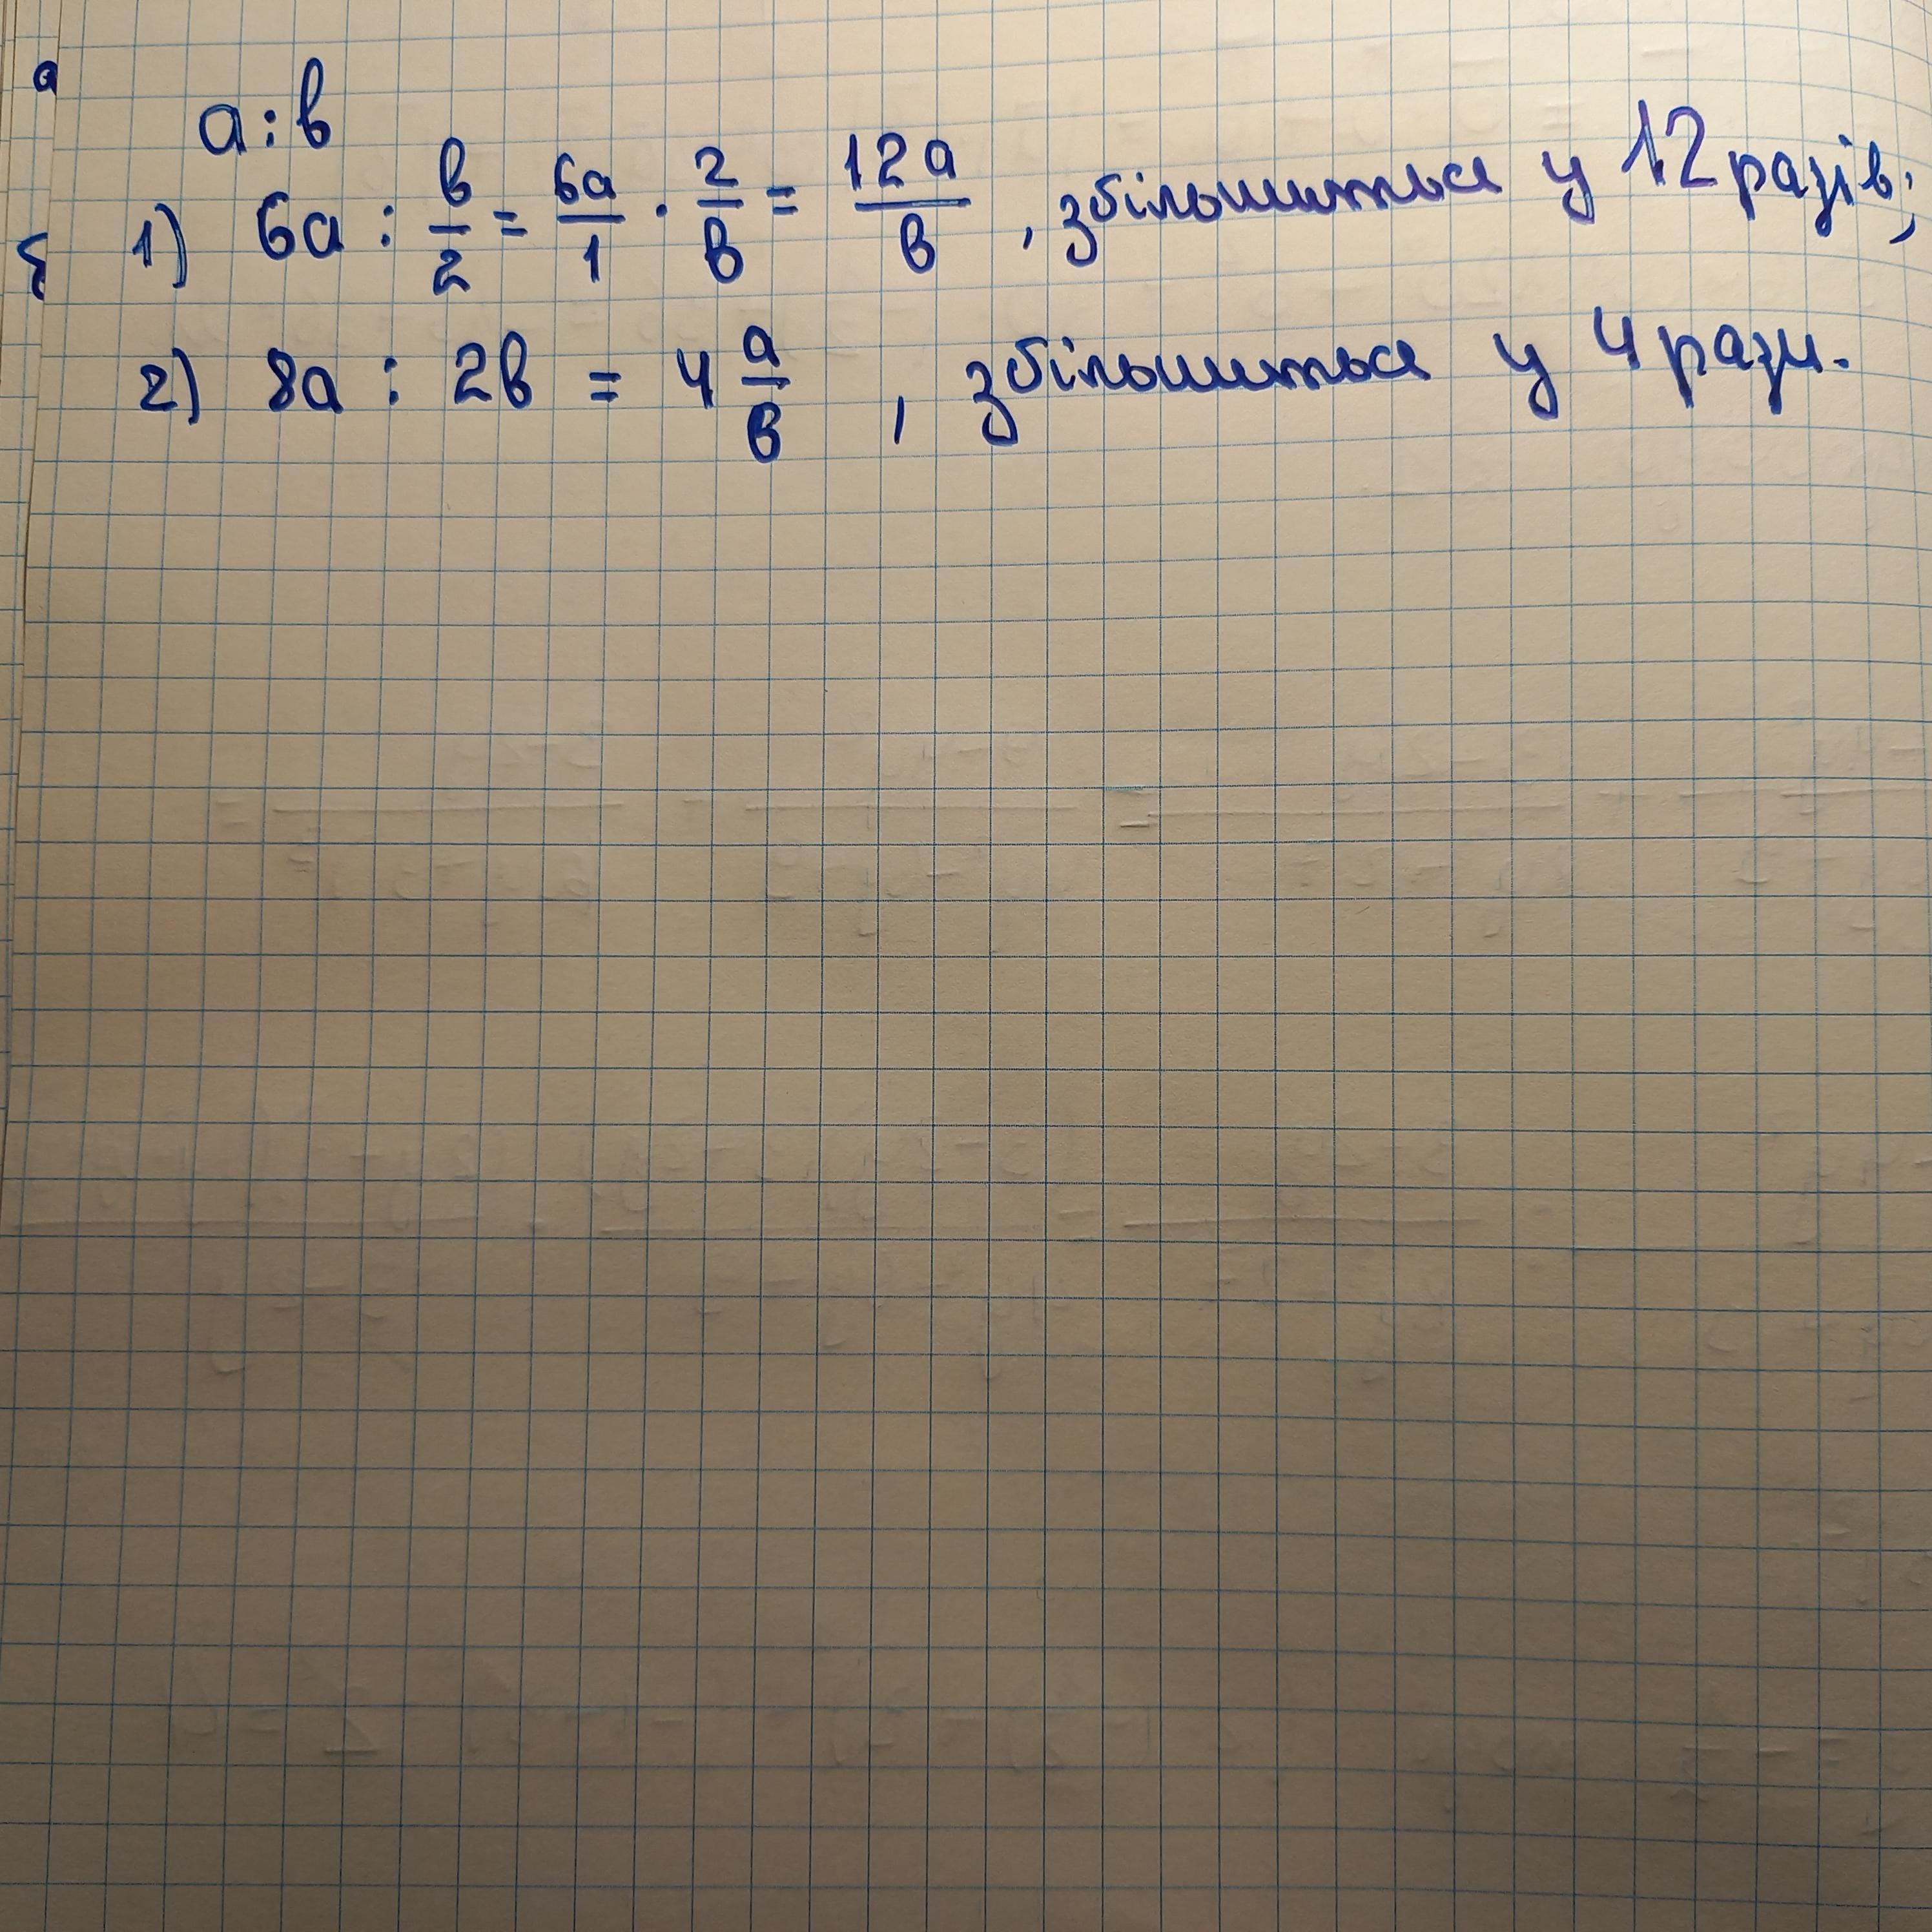 а : в
1) 6а : в/2 = 6а/1 · 2/в = 12а/в , збільшиться у 12 разів;
2) 8а : 2в = 4 а/в , збільшиться у 4 рази.